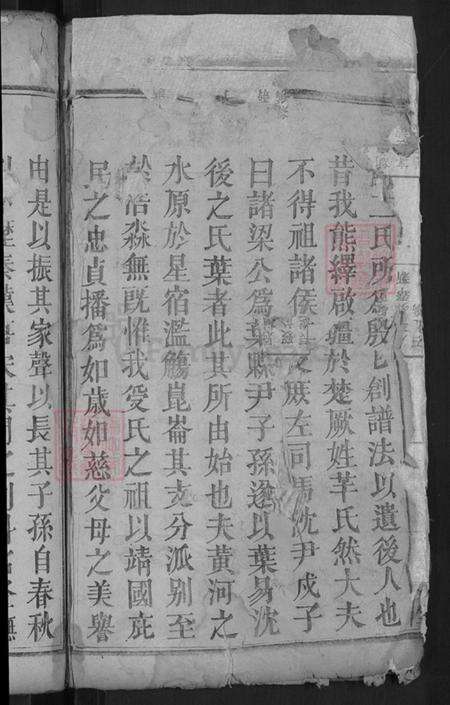 二氏所爲殷
創譜法以遺後人也
昔我熊繹啟疆於楚厥姓芊氏然大夫
不得祖諸侯
厥左司馬沈尹戌子
曰諸梁公爲葉縣尹子孫遂以葉易沈
後之氏葉者此其所由始也夫黃河之
水原於星宿濫觴崑崙其支分派別至
於浩淼無旣惟我受氏之祖以靖國庇
民之忠貞播爲如歲如慈父母之美譽
由是以振其家聲以長其子孫自春秋